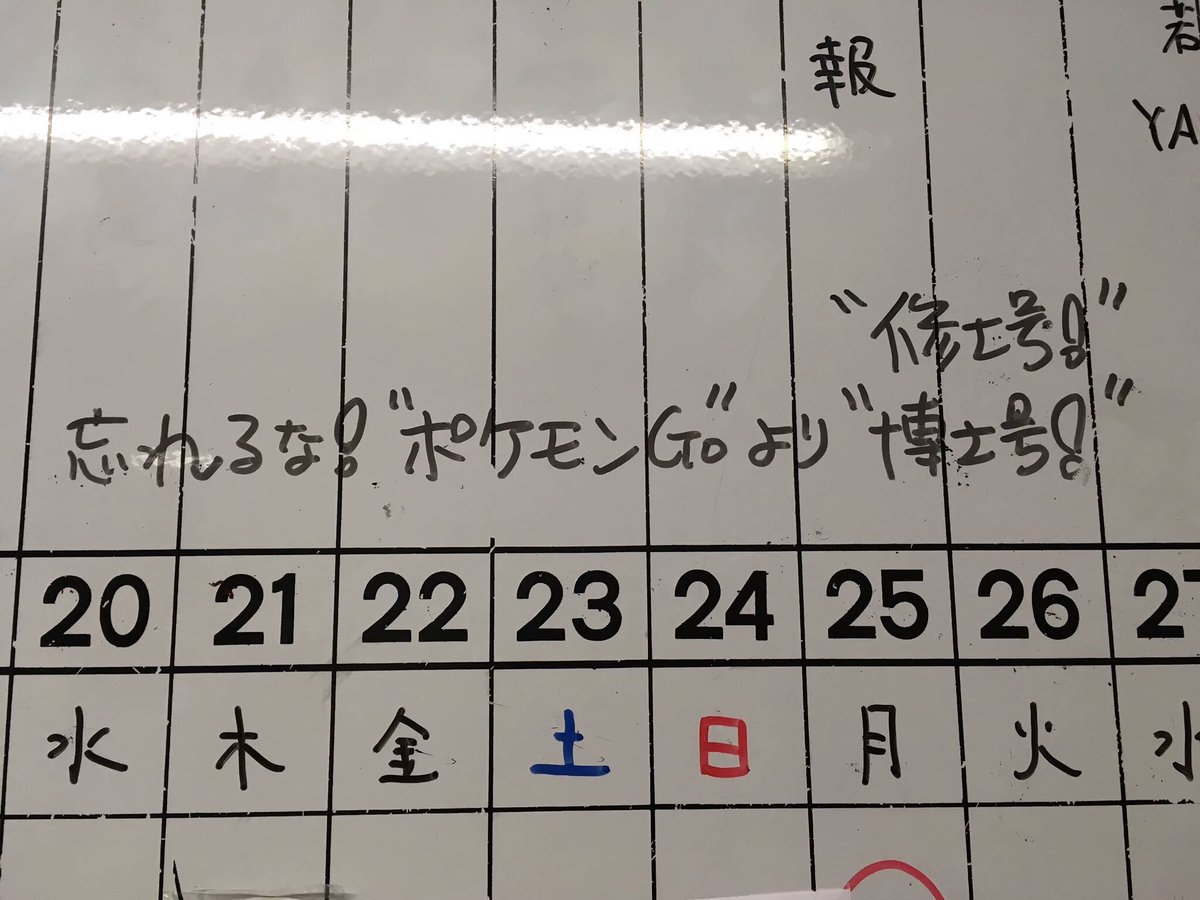 若
報
YA
"修士号!"
忘れるな!"ポケモンGo"より"博士号!"
20 21 22 23 24 25 26 27
水 木 金 土 日 月 火 水